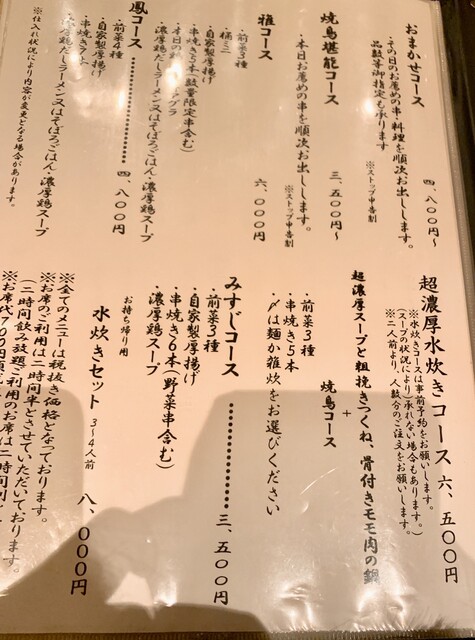 おまかせコース 四、八〇〇円〜
・その日のお薦めの串・料理を順次お出しします。
品数等御指定も承ります
※ストップ申告制
焼鳥堪能コース 三、五〇〇円〜
・本日お薦めの串を順次、お出しします。
※ストップ申告制
雅コース 六、〇〇〇円
・前菜3種
・桶ミニ
・自家製厚揚げ
・串焼き5本(数量限定串含む)
・濃厚鶏だしラーメン又はそぼろごはん・濃厚鶏スープ
鳳コース 四、八〇〇円
・前菜4種
・自家製厚揚げ
・濃厚鶏だしラーメン又はそぼろごはん・濃厚鶏スープ
※仕入れ状況により内容が変更となる場合があります。
超濃厚水炊きコース 六、五〇〇円
※水炊きコースは事前予約をお願いします。
(スープの状況により承れない場合もあります。)
※二人前より、人数分のご注文をお願いします。
超濃厚スープと粗挽きつくね、骨付きモモ肉の鍋
+
焼鳥コース
・前菜3種
・串焼き5本
・〆は麺か雑炊をお選びください
みすじコース 三、五〇〇円
・前菜3種
・自家製厚揚げ
・串焼き6本(野菜串含む)
・濃厚鶏スープ
お持ち帰り用
水炊きセット 3〜4人前 八、〇〇〇円
※全てのメニューは税抜き価格となっております。
※お席のご利用は二時間半とさせていただいております。
(二時間飲み放題ご利用のお席は二時間制